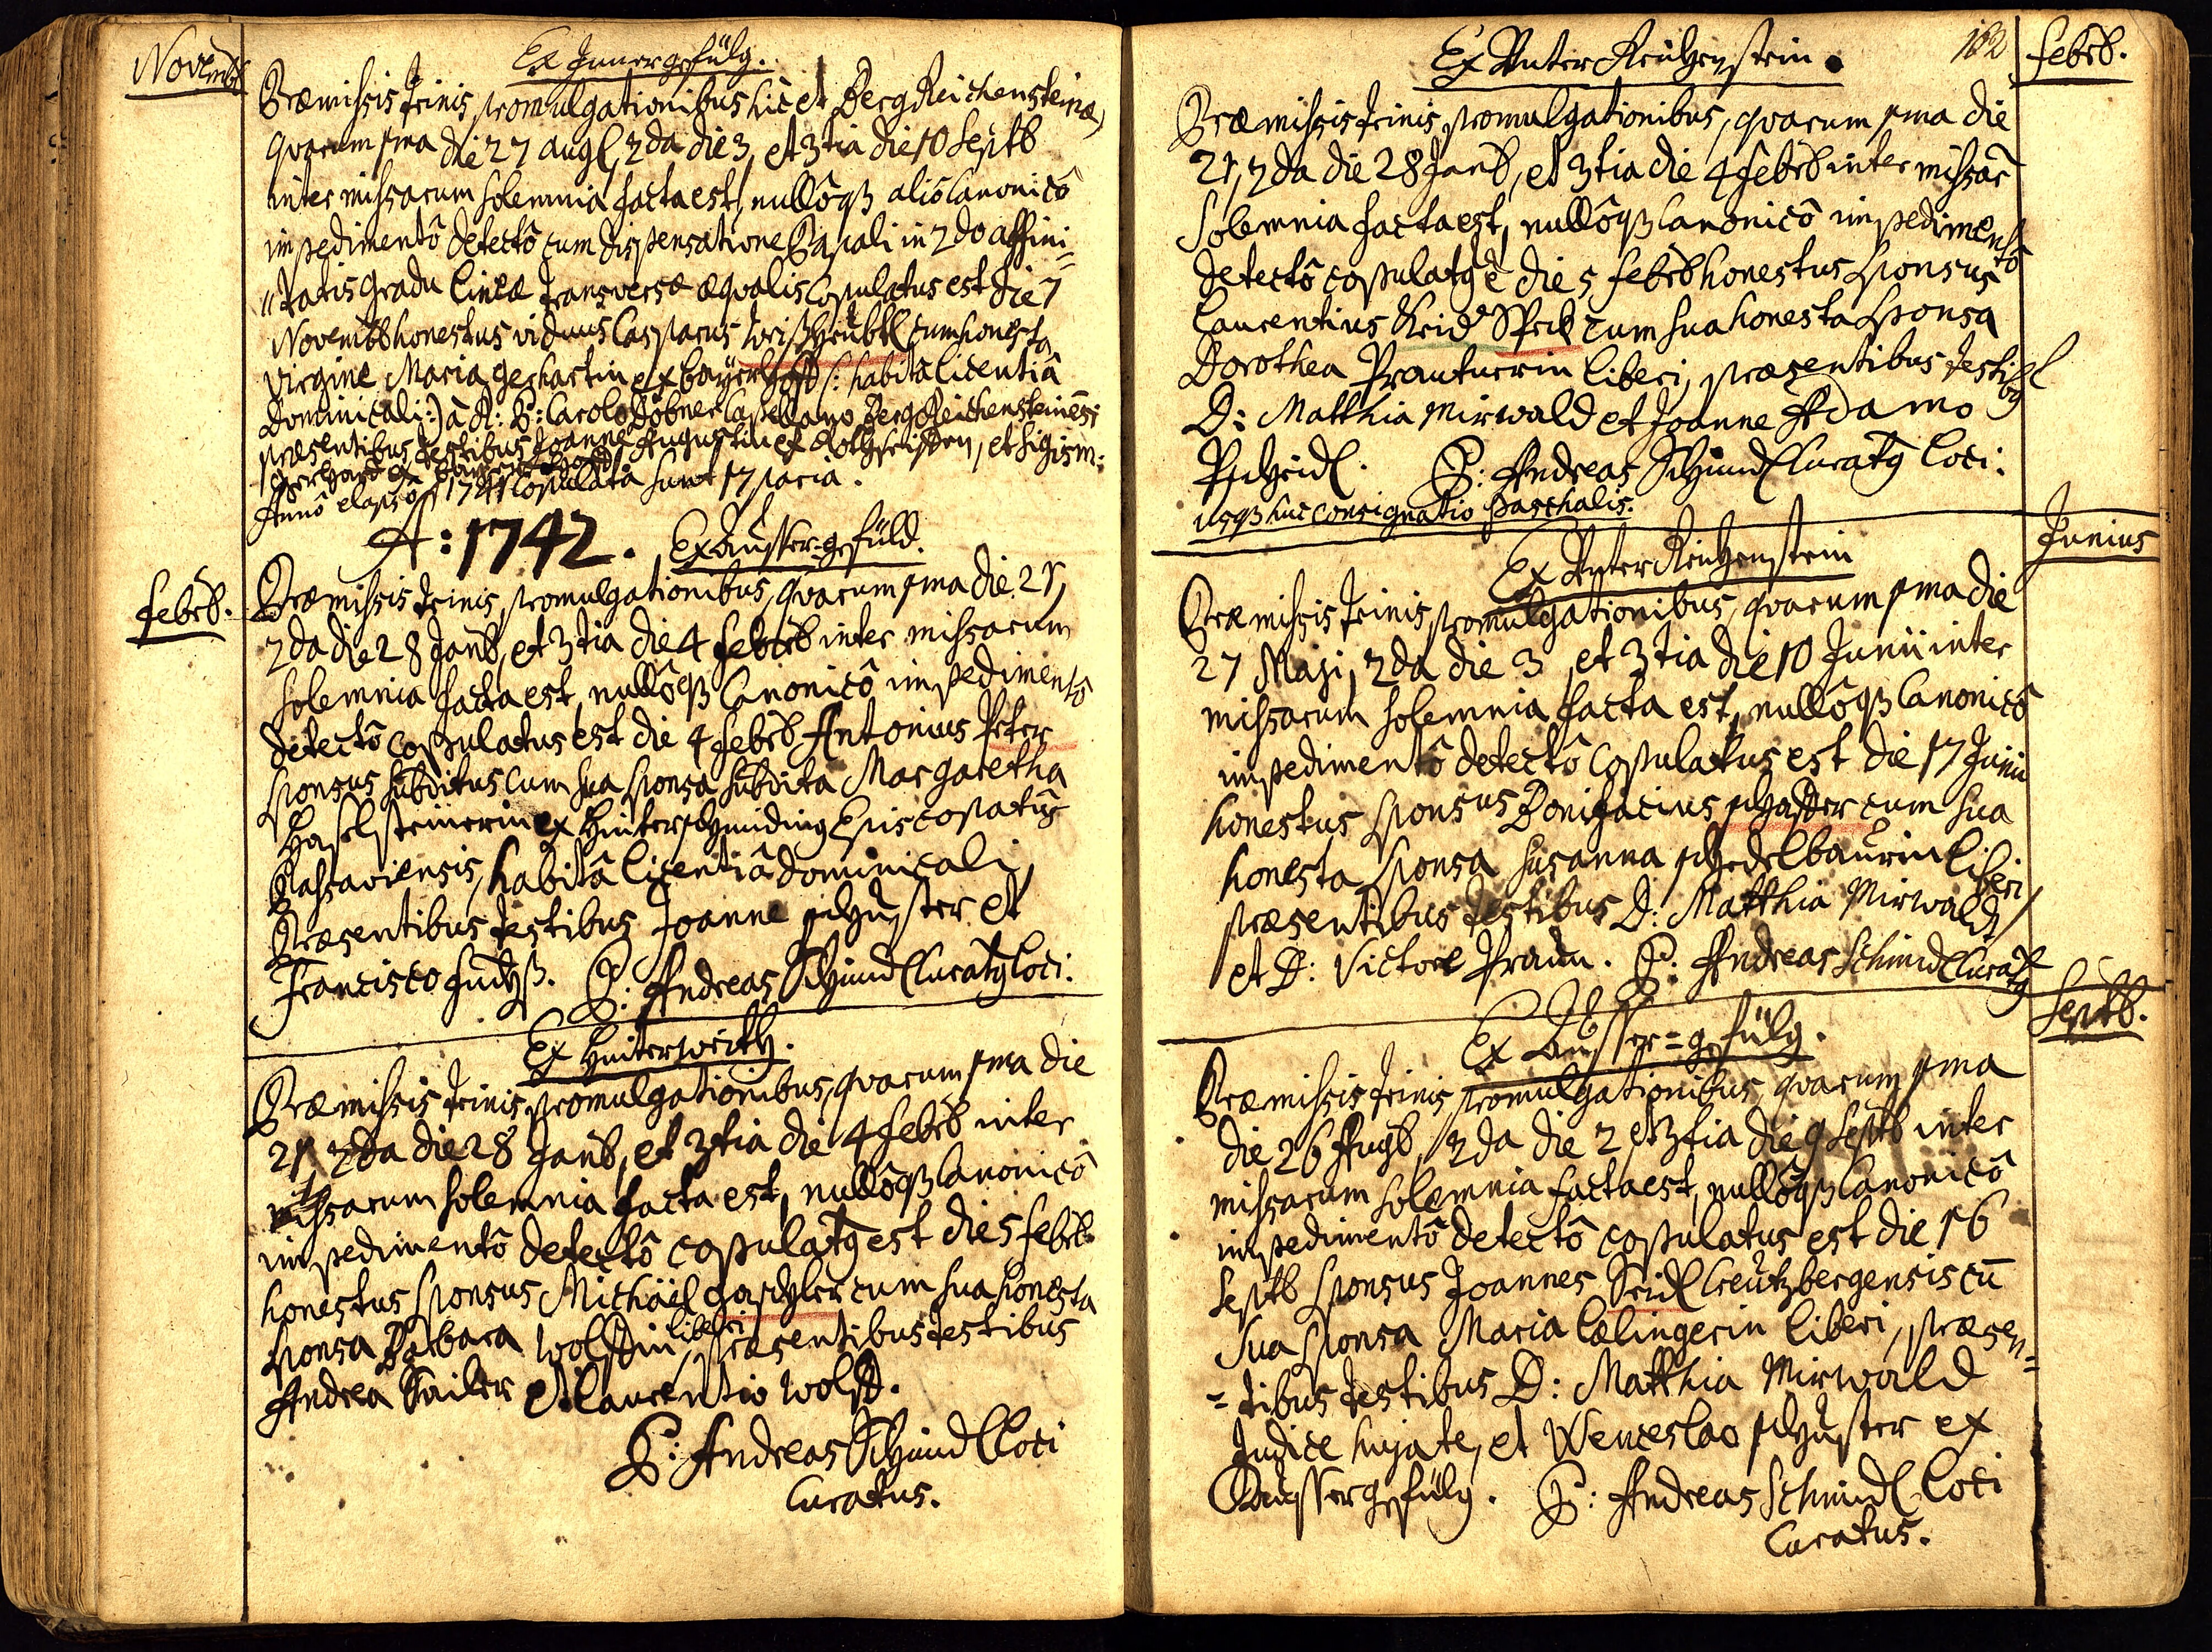 Novemb
Ex Innergefülg.
Præmissis trinis promulgationibus hic et BergReichensteinæ,
quarum 1ma die 27 aug, 2da die 3, et 3tia die 10 Septb
inter missarum solemnia facta est, nullôqß aliô Canonicô
impedimentô detectô cum dispensatione Papali in 2do affini=
"tatis gradu lineæ transversæ æqvalis Copulatus est die 7
Novembb honestus viduus Casparus cum honesta
virgine Maria Gerhartin ex /: habitâ licentiâ
Dominicali :/ â R: P: Carolo Döbner Capellano BergReichensteinēsi
præsentibus testibus Joanne Augustin ex et Sigism:
Gerhard ex
Annô elapsô 1741 Copulata sunt 17 paria.
A: 1742. Ex Ausser=gefüld.
Febrb.
Præmissis trinis promulgationibus, quarum 1ma die 21,
2da die 28 Janb, et 3tia die 4 Febrb inter missarum
solemnia facta est, nullôqß Canonicô impedimentô
detectô copulatus est die 4 Febrb Antonius Peter
sponsus subditus cum sua sponsa subdita Margaretha
Haselsteinerin ex Hinterschmiding Episcopatûs
Passaviensis, habitâ licentiâ dominicali,
Præsentibus testibus Joanne Schuster et
Francisco P: Andreas Schmidl Curatg loci.
Ex Hinterwerth.
Præmissis trinis promulgationibus, quarum 1ma die
21, 2da die 28 Janb, et 3tia die 4 Febrb inter
missarum solemnia facta est, nullôqß Canonicô
impedimentô detectô copulatg est die 5 Febrb
honestus sponsus Michäel Gaschler cum sua honesta
sponsa Barbara Wolffin liberi, præsentibus testibus
Andrea Sailer et Laurentio Wolff.
P: Andreas Schmidl loci
Curatus.
162
Febrb.
Ex Unter Reichenstein.
Præmissis trinis promulgationibus, quarum 1ma die
21, 2da die 28 Janb, et 3tia die 4 Febrb inter missar
solemnia facta est, nullôqß Canonicô impedimentô
detectô copulatg ē die 5 Febrb honestus sponsus
Laurentius cum sua honesta sponsa
Dorothea liberi, præsentibus testibg
D: Matthia Mirwald et Joanne Adamo
P: Andreas Schmidl Curatg loci.
usqß huc consignatio paschalis.
Junius
Ex Unter Reichenstein
Præmissis trinis promulgationibus, quarum 1ma die
27 Maji, 2da die 3, et 3tia die 10 Junii inter
missarum solemnia facta est, nullôqß Canonicô
impedimentô detectô copulatus est die 17 Junii
honestus sponsus Bonifacius cum sua
honesta sponsa Susanna liberi
præsentibus testibus D: Matthia Mirwald,
et D: Victore Praun. P: Andreas Schmidl Curatg
Septb.
Ex Ausser=gefülg.
Præmissis trinis promulgationibus, quarum 1ma
die 26 Augb, 2da die 2 et 3tia die 9 Septb inter
missarum solemnia facta est, nullôqß Canonicô
impedimentô detectô copulatus est die 16
Septb sponsus Joannes Seidl Creutzbergensis cū
sua sponsa Maria Cælingerin liberi, præsen=
=tibus testibus D: Matthia Mirwald
Judice hujate, et Wenceslao Schuster ex
Aussergefülg. P: Andreas Schmidl loci
Curatus.